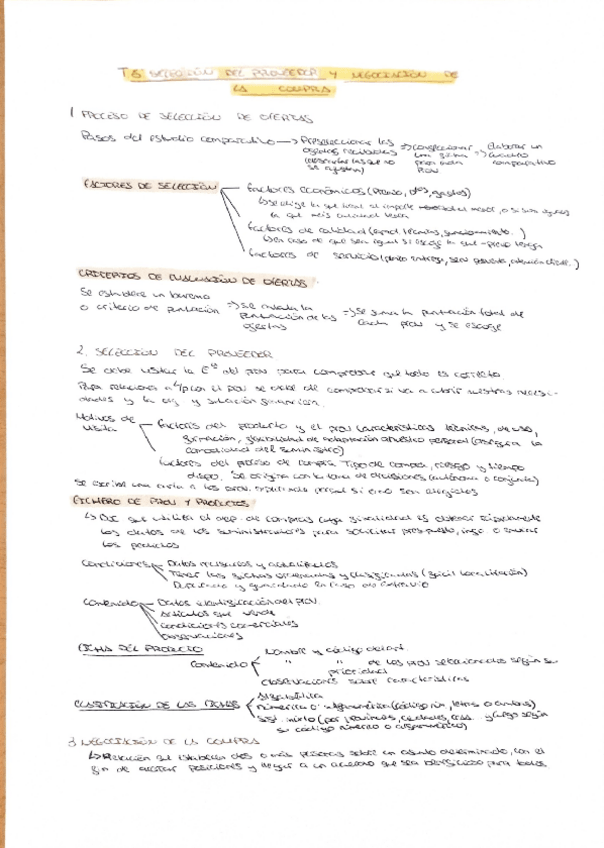 T.5 SELECCIÓN DEL PROVEEDOR Y NEGOCIACIÓN DE
LA COMPRA
1 PROCESO DE SELECCIÓN DE OFERTAS
Pasos del estudio comparativo → Preseleccionar las ofertas recibidas (descartar las que no se ajustan) → confeccionar una ficha para cada prov → elaborar un cuadro comparativo
FACTORES DE SELECCIÓN
factores económicos (precio, dtos, gastos)
la que más calidad tenga
factores de calidad
↳ en caso de que sean igual si escoge la que - precio tenga
factores de servicio (plazo entrega,
CRITERIOS DE EVALUACIÓN DE OFERTAS
Se establece un baremo
o criterio de puntuación → se calcula la puntuación de las ofertas → se suma la puntuación total de cada prov y se escoge
2. SELECCIÓN DEL PROVEEDOR
Se debe visitar la Eª del prov para comprobar que todo es correcto
Para relaciones a l/p con el prov se debe de comprobar si va a cubrir nuestras necesi-
dades y la org y situación financiera.
Motivos de visita
factores del producto y el prov características técnicas, de uso,
formación, flexibilidad de adaptación a nuestro personal (asegura la
continuidad del suministro)
factores del proceso de compra. Tipo de compra, riesgo y tiempo
dispo. Se origina con la toma de decisiones (autónoma o conjunta)
Se escribe una carta a los prov. explicando porqué si o no son elegidos
FICHERO DE PROV Y PRODUCTOS
↳ BD que utiliza el dep. de compras cuya finalidad es obtener rápidamente
los datos de los suministradores para solicitar presupuesto, info. o enviar
los pedidos
Condiciones
Datos necesarios y actualizados
Tener las fichas ordenadas y clasificadas (fácil localización)
Duplicado y guardado en caso de extravío
Contenido
Datos identificación del prov.
Artículos que vende
condiciones comerciales
observaciones
FICHA DEL PRODUCTO
Contenido
Nombre y código del art.
" " de los prov seleccionados según su
prioridad
observaciones sobre características
CLASIFICACIÓN DE LAS FICHAS
Alfabética
Numérica o alfanumérica (código nº, letras o ambos)
Sist. mixto (por provincias, ciudades, y luego según
su código numérico o alfanumérico)
3 NEGOCIACIÓN DE LA COMPRA
↳ Relación que establecen dos o más personas sobre un asunto determinado, con el
fin de acercar posiciones y llegar a un acuerdo que sea beneficioso para todos